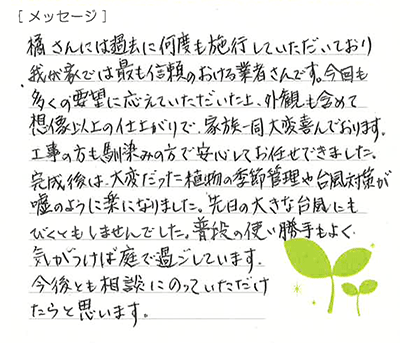 [メッセージ]
橘さんには過去に何度も施行していただいており
我が家では最も信頼のおける業者さんです。今回も
多くの要望に応えていただいた上、外観も含めて
想像以上の仕上がりで、家族一同大変喜んでおります。
工事の方も馴染みの方で安心してお任せできました。
完成後は、大変だった植物の季節管理や台風対策が
嘘のように楽になりました。先日の大きな台風にも
びくともしませんでした。普段の使い勝手もよく
気がつけば庭で過ごしています。
今後とも相談にのっていただけ
たらと思います。